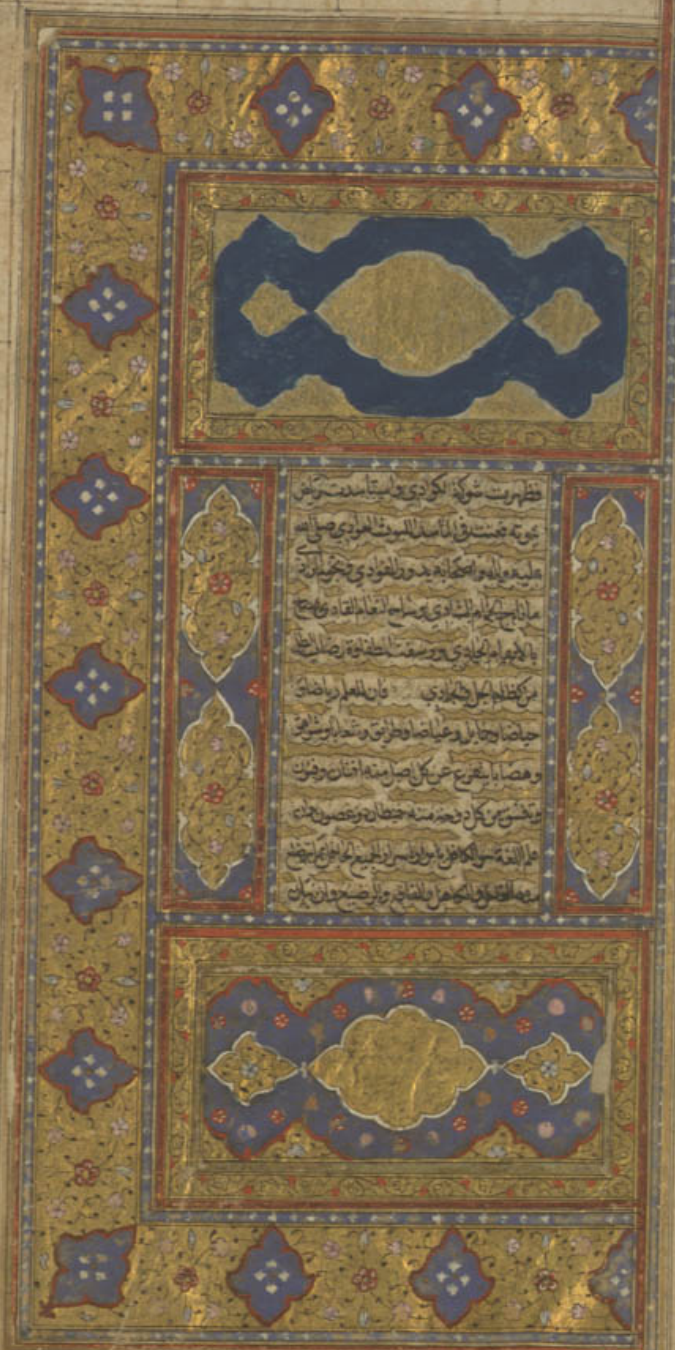 فظهرت شوكة الكوادي واستاسدت رياض
نبوته فعيت في المآسد الليوث العوادي صلى الله
عليه وآله واصحابه بدور القوادي
ما ناح الحمام الشادي وساح النعام القادي وصاح
بالانغام الحادي ورشفت الطفاوة رضاب الطل
من كظام الجل والجادي فان للعلم رياضا و
حياضا وخمايل وغياضا وطرايق وشعابا وشواهق
وهضابا يتفرع عن كل اصل منه افنان وفنون
وينشق عن كل دوحة منه خيطان وغصون وان
علم اللغة هو الكافل بابراز اسرار الجميع الحافل بما يتضلع
منه القاحل والكاهل والفاقع والرضيع وان بيان